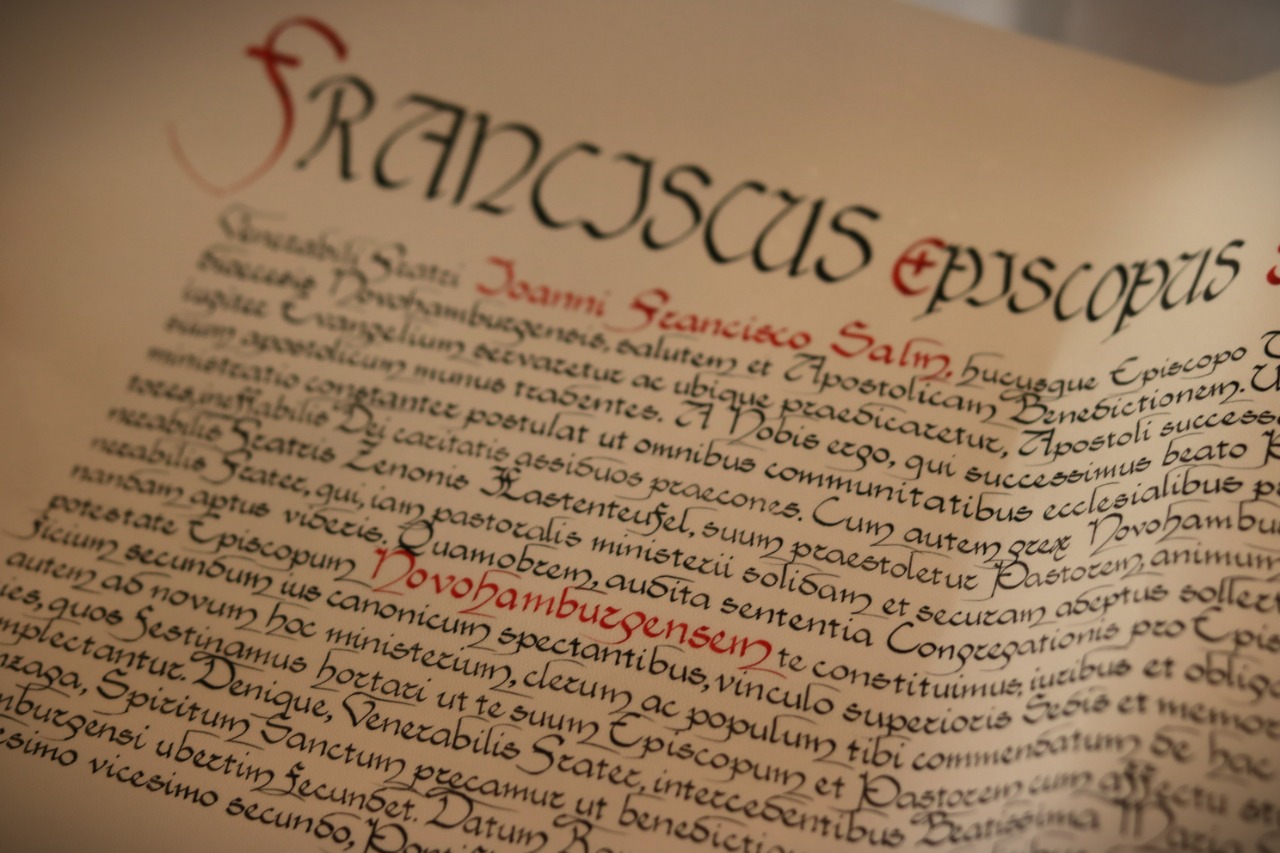 FRANCISCUS EPISCOPUS
Venerabili Fratri Ioanni Francisco Salm, hucusque Episcopo
dioecesis Novohamburgensis, salutem et Apostolicam Benedictionem. U
iugiter Evangelium servaretur ac ubique praedicaretur, Apostoli success
suum apostolicum munus tradentes. A Nobis ergo, qui successimus beato P
ministratio constanter postulat ut omnibus communitatibus ecclesialibus p
tores, ineffabilis Dei caritatis assiduos praecones. Cum autem grex Novohambu
nerabilis Fratris Zenonis Hastenteufel, suum praestoletur Pastorem, animum
nerabilis Frater, qui, iam pastoralis ministerii solidam et securam adeptus soller
nandam aptus videris. Quamobrem, audita sententia Congregationis pro Epis
potestate Episcopum Novohamburgensem te constituimus, iuribus et oblig
ficium secundum ius canonicum spectantibus, vinculo superioris Sedis et memor
autem ad novum hoc ministerium, clerum ac populum tibi commendatum de hac
ies, quos festinamus hortari ut te suum Episcopum et Pastorem cum affectu st
mplectantur. Denique, Venerabilis Frater, intercedentibus Beatissima Maria
nzaga, Spiritum Sanctum precamur ut benedictio
mburgensi ubertim fecundet. Datum Ro
esimo vicesimo secundo, Ponti